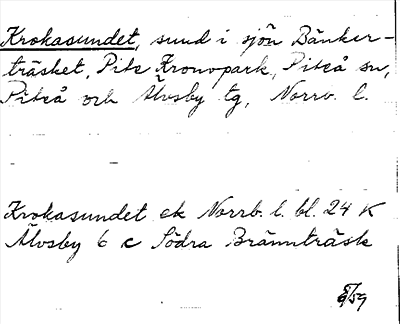 Krokasundet, sund i sjön Bänker-
träsket, Pite Kronopark, Piteå sn,
Piteå och Älvsby tg, Norrb. l.
Krokasundet ek Norrb. l. bl. 24 K
Älvsby 6 c Södra Brännträsk
/59